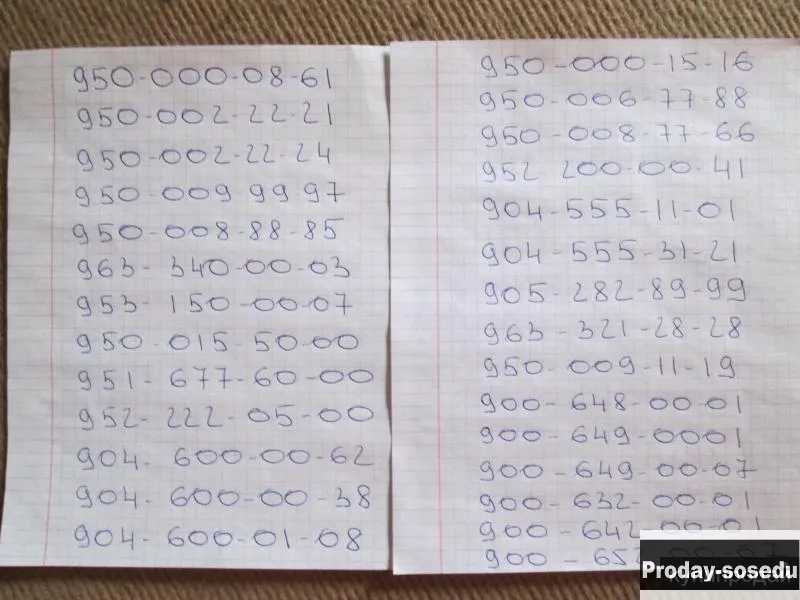 950-000-08-61
950-002-22-21
950-002-22-24
950-009 99 97
950-008-88-85
963-340-00-03
953-150-00-07
950-015-50-00
951-677-60-00
952-222-05-00
904-600-00-62
904-600-00-38
904-600-01-08
950-000-15-16
950-006-77-88
950-008-77-66
952 200-00-41
904-555-11-01
904-555-31-21
905-282-89-99
963-321-28-28
950-009-11-19
900-648-00-01
900-649-0001
900-649-00-07
900-632-00-01
900-642-00-01
900-65
Proday-sosedu